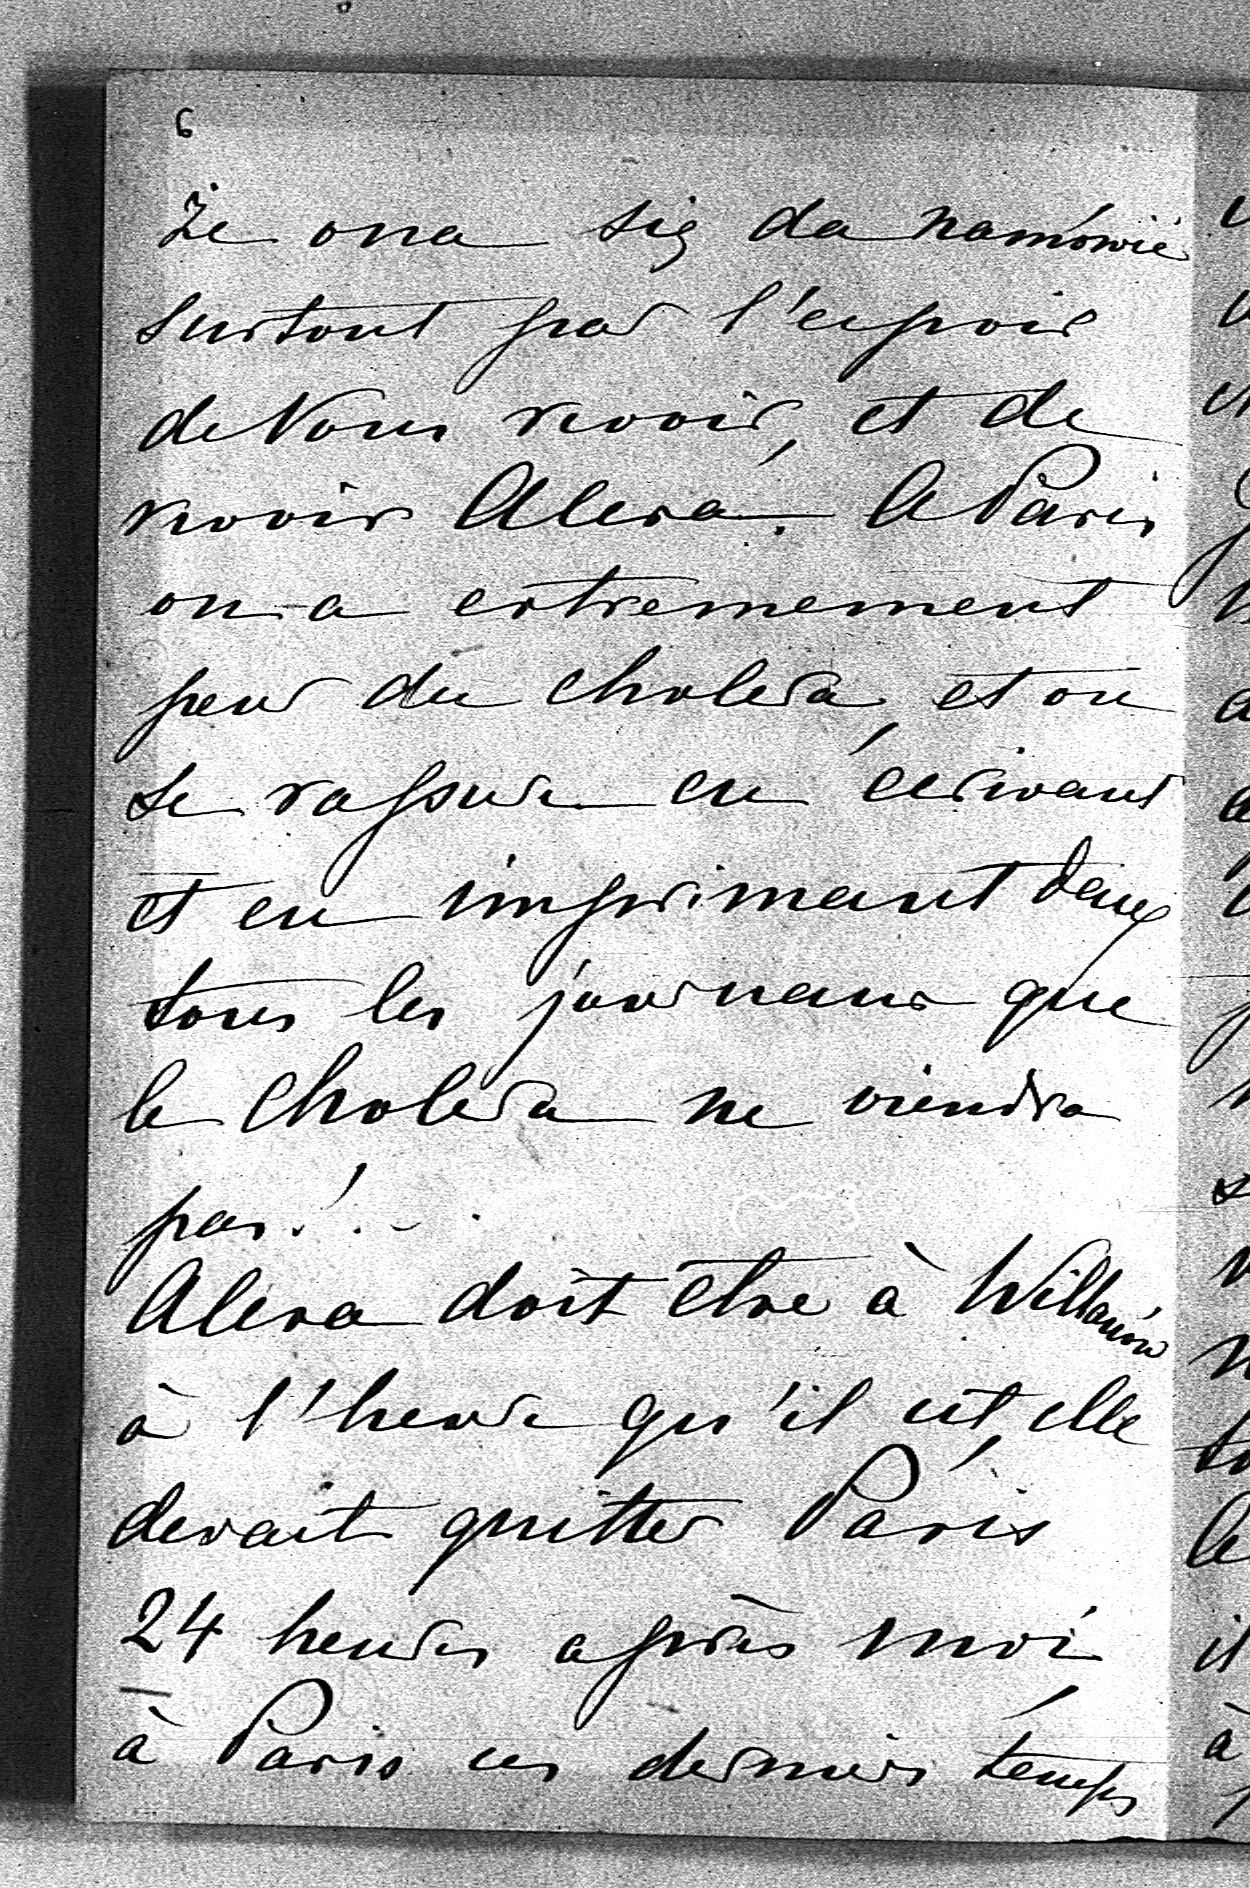 6
że ona się da namówić
surtout par l'espoir
de Vous revoir, et de
revoir Alexa. A Paris
on a extremement
peur du cholera, et on
se rassure en écrivant
et en imprimant dans
tous les journaux que
le cholera ne viendra
pas!
Alexa doit être à Willanów
à l'heure qu'il est, elle
devait quitter Paris
24 heures après moi
à Paris ces derniers temps